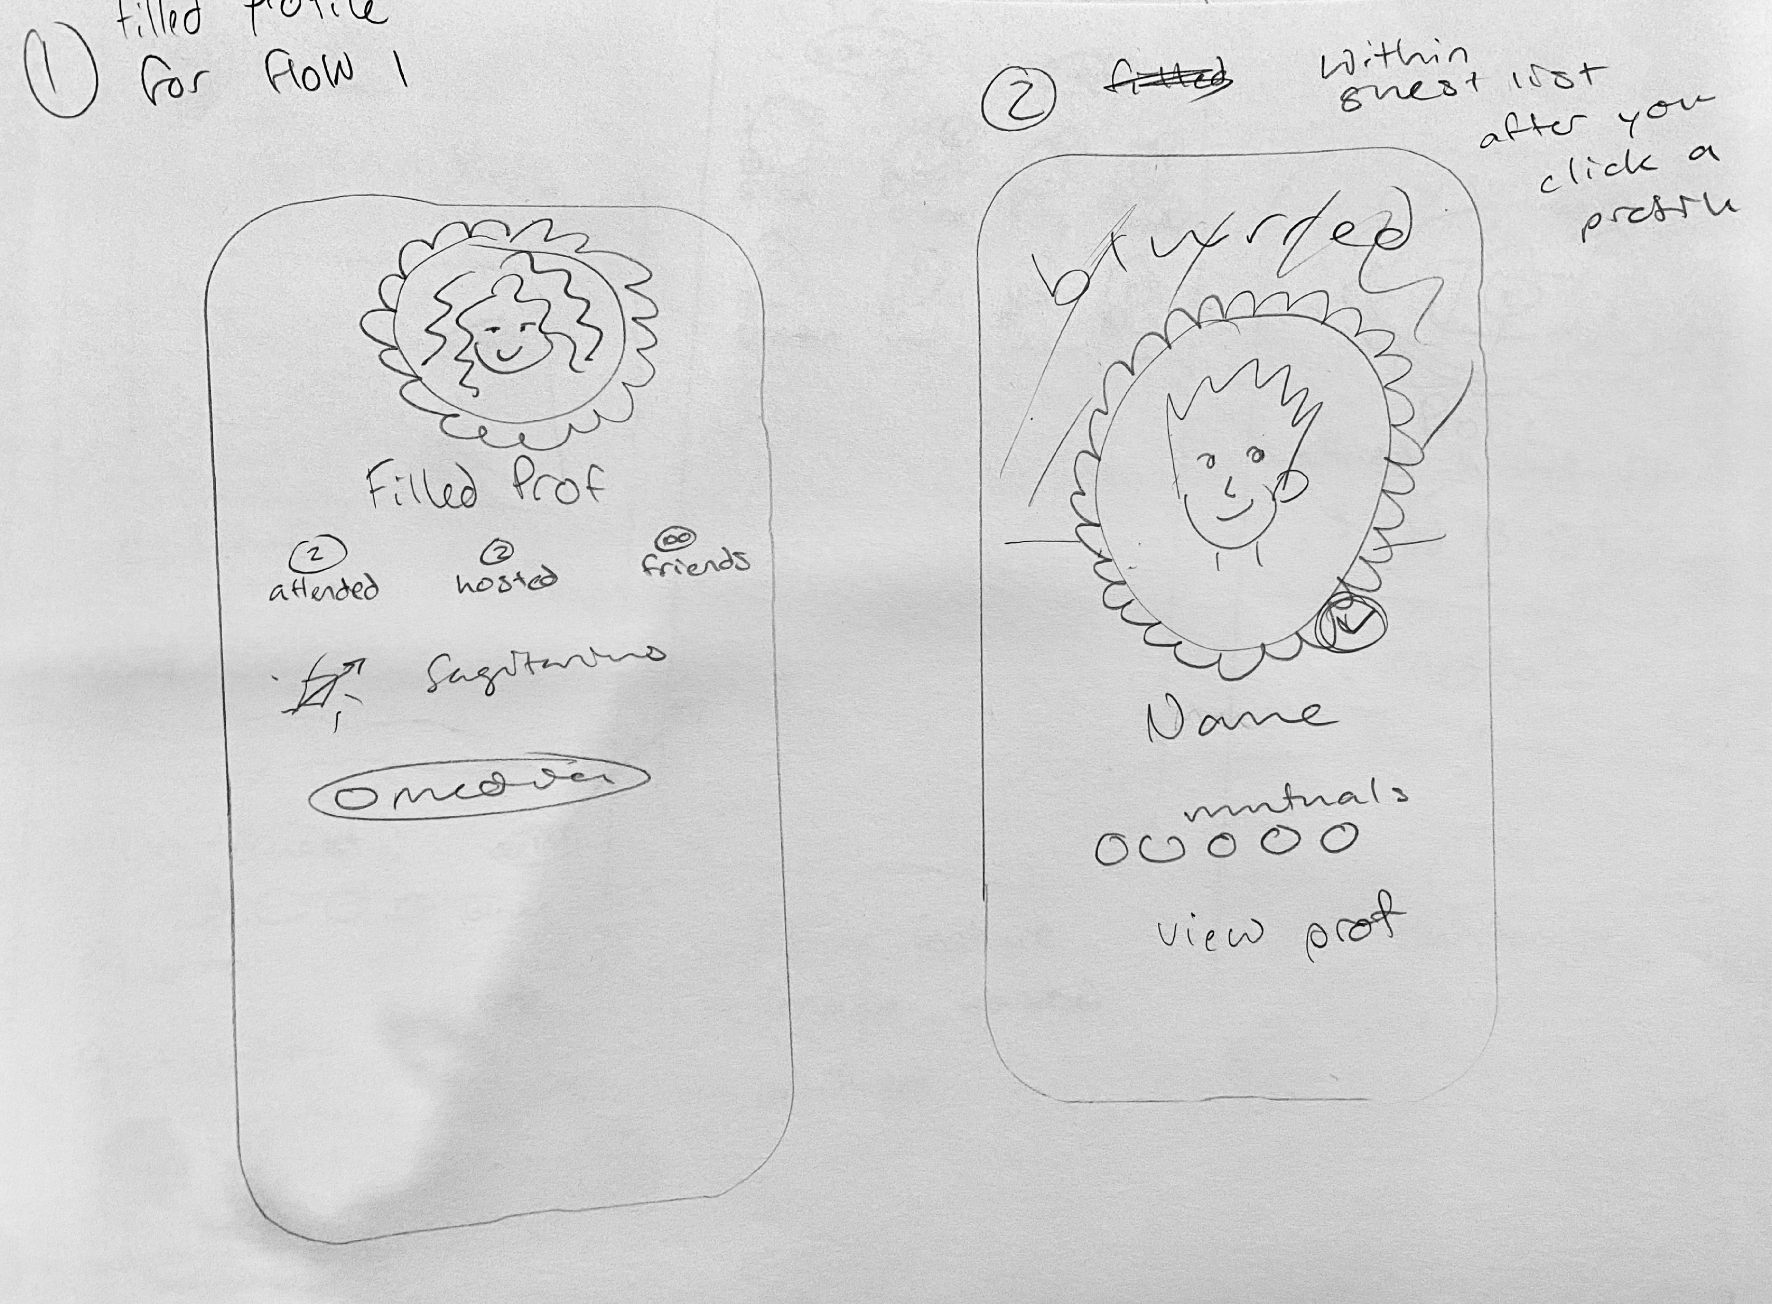 1
filled profile
for flow 1
Filled Prof
2 2 100
attended hosted friends
Sagitarius
2
filled
within
guest list
after you
click a
profile
blurred
Name
mutuals
view prof